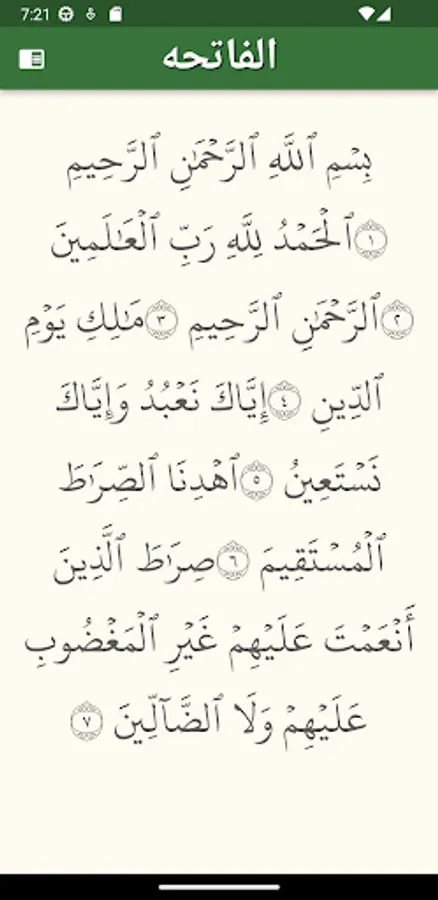 7:21
الفاتحه
بِسۡمِ ٱللَّهِ ٱلرَّحۡمَٰنِ ٱلرَّحِيمِ
١ ٱلۡحَمۡدُ لِلَّهِ رَبِّ ٱلۡعَٰلَمِينَ
٢ ٱلرَّحۡمَٰنِ ٱلرَّحِيمِ ٣ مَٰلِكِ يَوۡمِ
ٱلدِّينِ ٤ إِيَّاكَ نَعۡبُدُ وَإِيَّاكَ
نَسۡتَعِينُ ٥ ٱهۡدِنَا ٱلصِّرَٰطَ
ٱلۡمُسۡتَقِيمَ ٦ صِرَٰطَ ٱلَّذِينَ
أَنۡعَمۡتَ عَلَيۡهِمۡ غَيۡرِ ٱلۡمَغۡضُوبِ
عَلَيۡهِمۡ وَلَا ٱلضَّآلِّينَ ٧